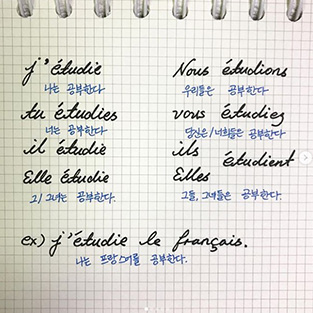 j'étudie
나는 공부한다.
tu étudies
너는 공부한다.
il étudie
Elle étudie
그/그녀는 공부한다.
Nous étudions
우리들은 공부한다.
vous étudiez
당신은/너희들은 공부한다
ils
étudient
Elles
그들, 그녀들은 공부한다.
ex) j'étudie le français.
나는 프랑스어를 공부한다.